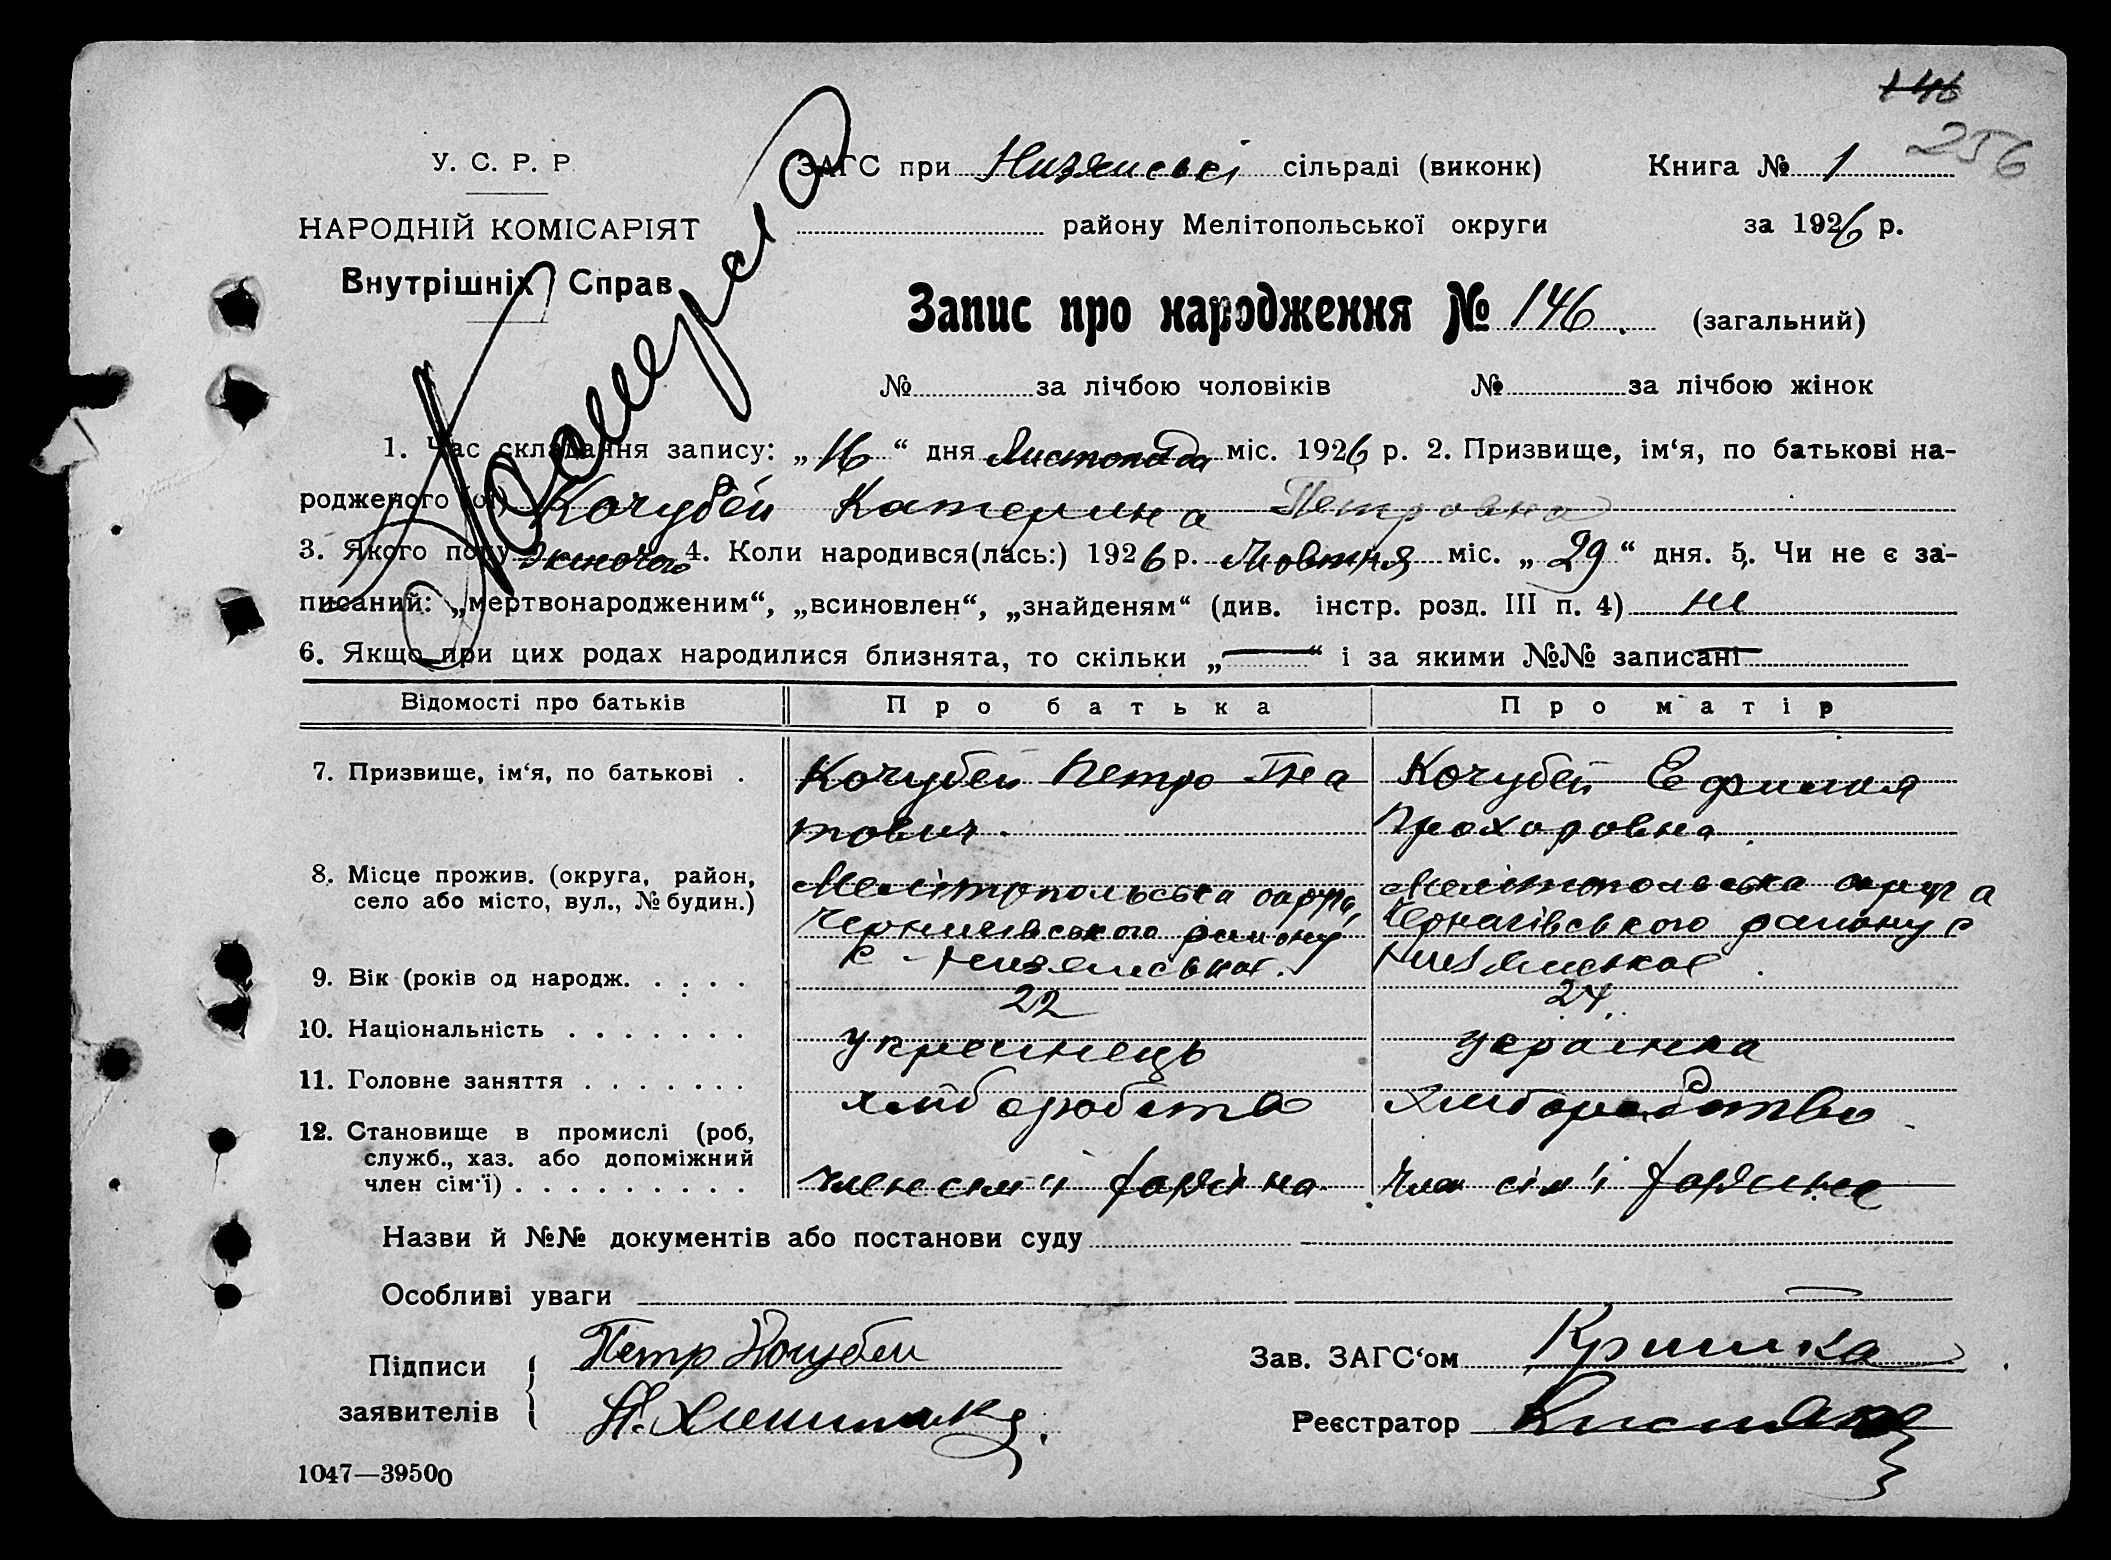 146
256
У. С. Р. Р.
ЗАГС при Низянській сільраді (виконк) Книга № 1
НАРОДНІЙ КОМІСАРІЯТ
району Мелітопольської округи за 1926 р.
Внутрішніх Справ
Запис про народження № 146. (загальний)
№ за лічбою чоловіків № за лічбою жінок
1. Час складання запису: „16“ дня Листопада міс. 1926 р. 2. Призвище, ім‘я, по батькові на-
родженого (ої) Кочубей Катерина Петровна
3. Якого полу жіночого 4. Коли народився(лась:) 1926 р. Жовтня міс. „29“ дня. 5. Чи не є за-
писаний: „мертвонародженим“, „всиновлен“, „знайденям“ (див. інстр. розд. III п. 4) ні
6. Якщо при цих родах народилися близнята, то скільки „—“ і за якими №№ записані
Відомості про батьків Про батька Про матір
7. Призвище, ім‘я, по батькові . Кочубей Петро Гна Кочубей Ефимия
тович. Прохоровна
8. Місце прожив. (округа, район, Мелітопольська округа, Мелітопольська округа
село або місто, вул., № будин.) Чернигівського району Чернигівського району с
с. Низянська. Низянська.
9. Вік (років од народж. . . . . 22 24.
10. Національність . . . . . . . українець українка
11. Головне заняття . . . . . . . хліборобство хліборобство
12. Становище в промислі (роб,
служб., хаз. або допоміжний
член сім‘ї) . . . . . . . . . член сім'ї хазяїна член сім'ї хазяїна
Назви й №№ документів або постанови суду
Особливі уваги
Підписи Петр Кочубей Зав. ЗАГС‘ом
заявителів Реєстратор
1047—39500